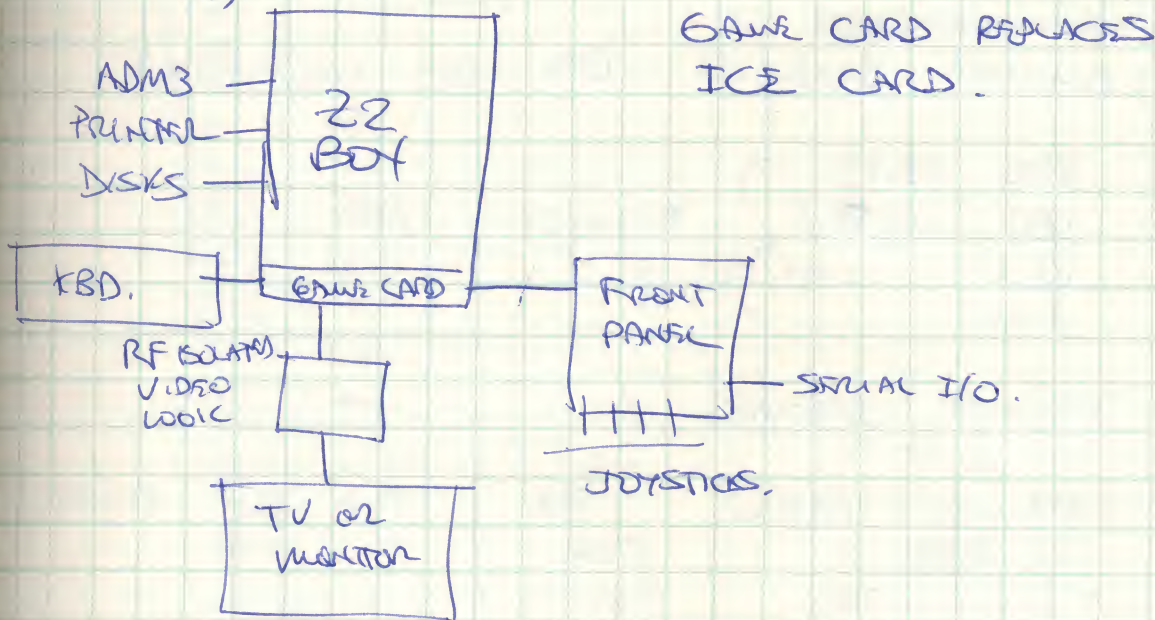 GAME CARD REPLACES
ICE CARD.
ADM3
PRINTER
DISKS
22
BOX
KBD.
GAME CARD
FRONT
PANEL
RF ISOLATED
VIDEO
LOGIC
SERIAL I/O.
JOYSTICKS.
TV OR
MONITOR